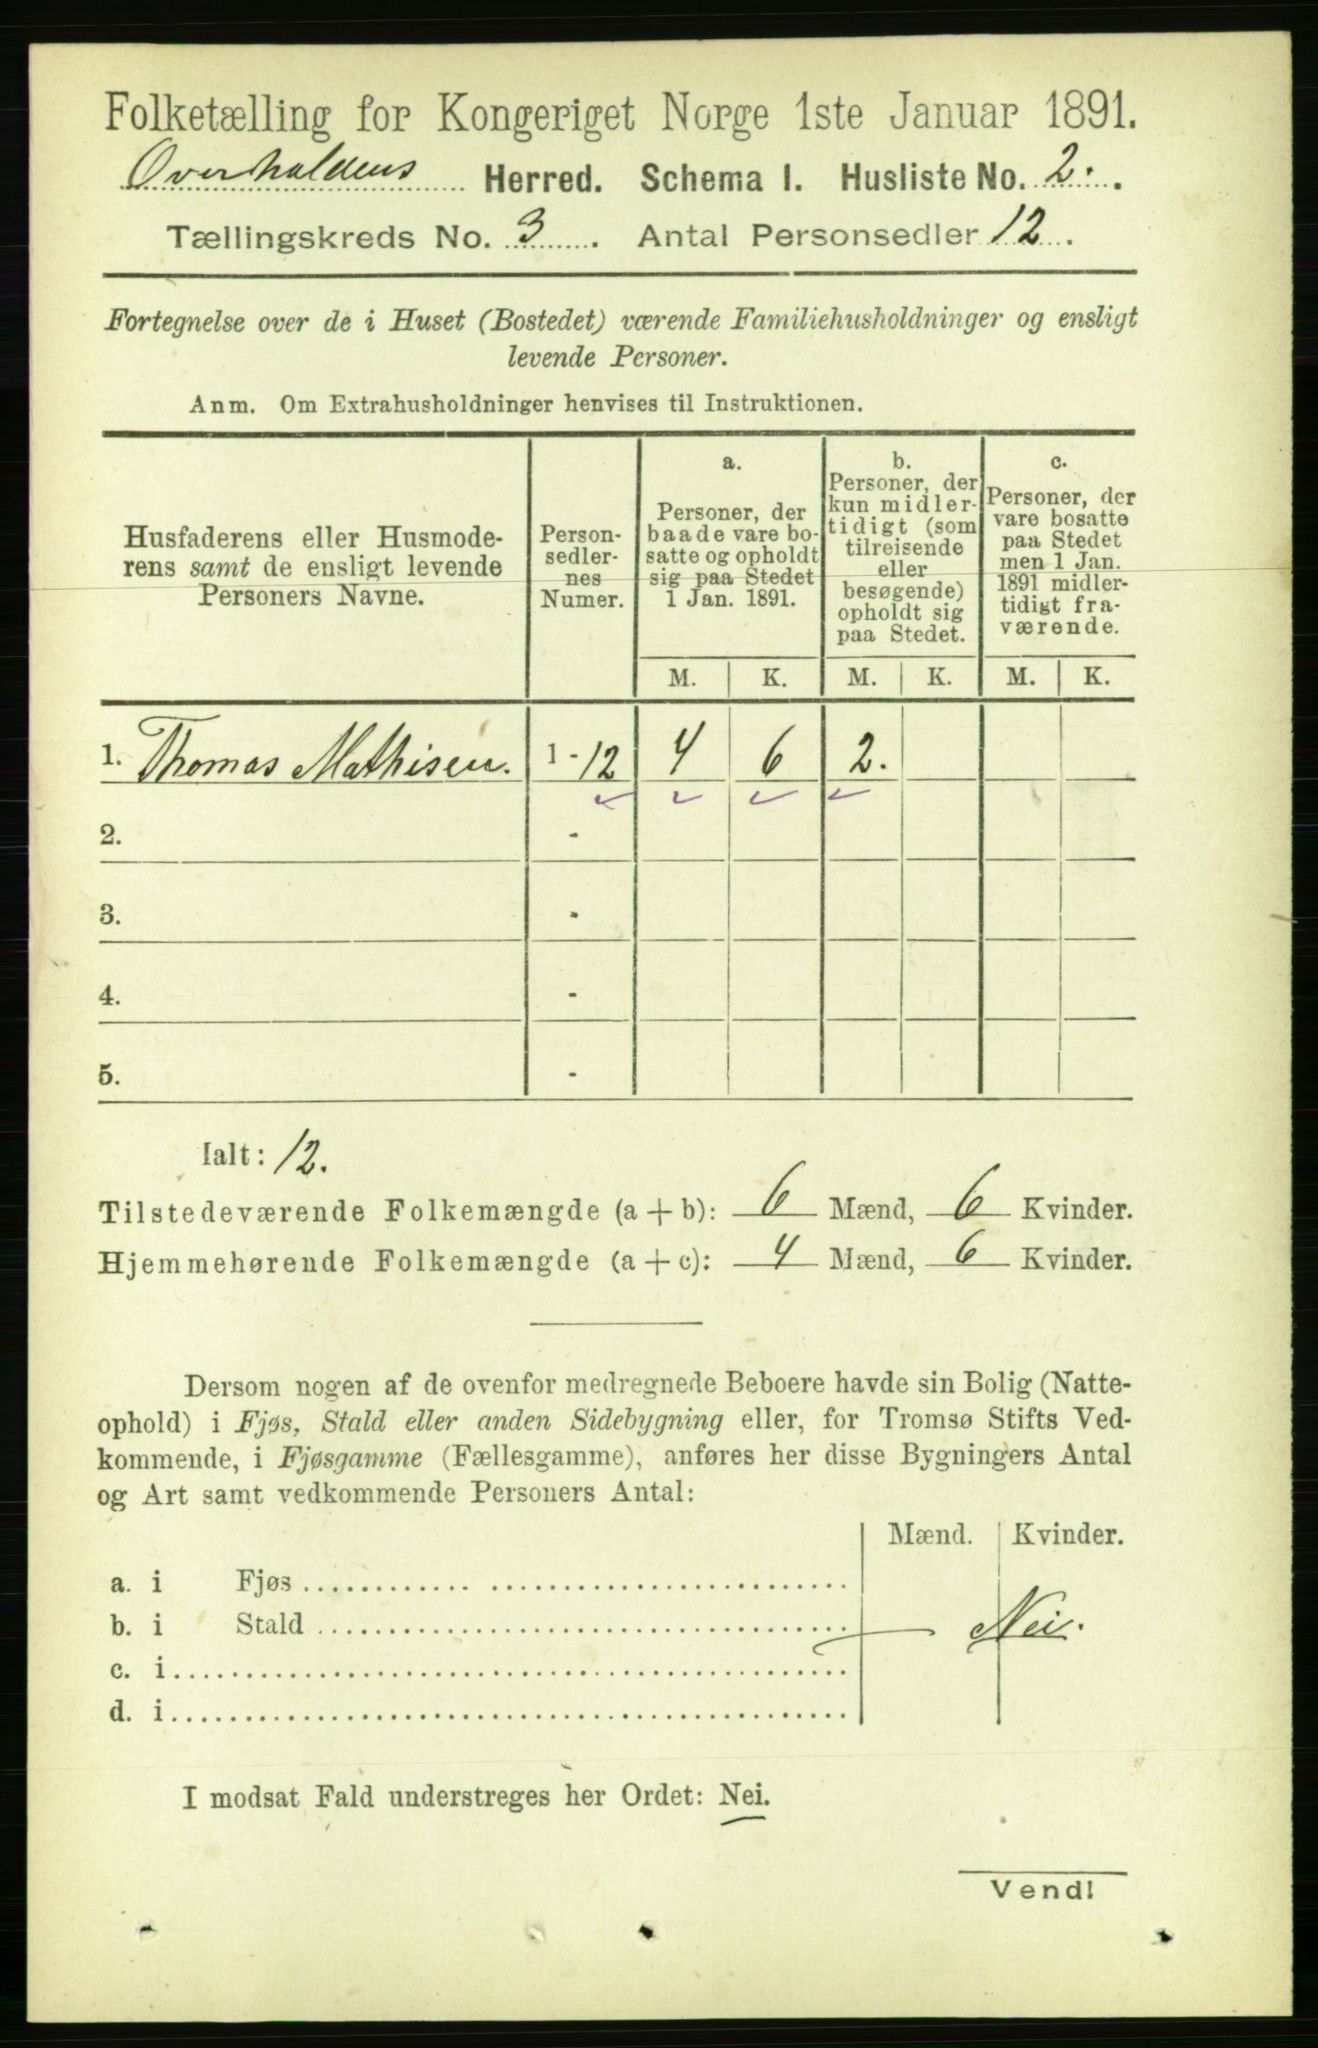 Folketælling for Kongeriget Norge 1ste Januar 1891.
Overhaldens Herred. Schema I. Husliste No. 2.
Tællingskreds No. 3. Antal Personsedler 12.
Fortegnelse over de i Huset (Bostedet) værende Familiehusholdninger og ensligt
levende Personer.
Anm. Om Extrahusholdninger henvises til Instruktionen.
Husfaderens eller Husmode-
rens samt de ensligt levende
Personers Navne.
Person-
sedler-
nes
Numer.
a.
Personer, der
baade vare bo-
satte og opholdt
sig paa Stedet
1 Jan. 1891.
b.
Personer, der
kun midler-
tidigt (som
tilreisende
eller
besøgende)
opholdt sig
paa Stedet.
c.
Personer, der
vare bosatte
paa Stedet
men 1 Jan.
1891 midler-
tidigt fra-
værende.
M. K. M. K. M. K.
1. Thomas Mathisen. 1 - 12 4 6 2.
2. -
3. -
4. -
5. -
Ialt: 12.
Tilstedeværende Folkemængde (a + b): 6 Mænd, 6 Kvinder.
Hjemmehørende Folkemængde (a + c): 4 Mænd, 6 Kvinder.
Dersom nogen af de ovenfor medregnede Beboere havde sin Bolig (Natte-
ophold) i Fjøs, Stald eller anden Sidebygning eller, for Tromsø Stifts Ved-
kommende, i Fjøsgamme (Fællesgamme), anføres her disse Bygningers Antal
og Art samt vedkommende Personers Antal:
Mænd. Kvinder.
a. i Fjøs
b. i Stald Nei.
c. i
d. i
I modsat Fald understreges her Ordet: Nei.
Vend!